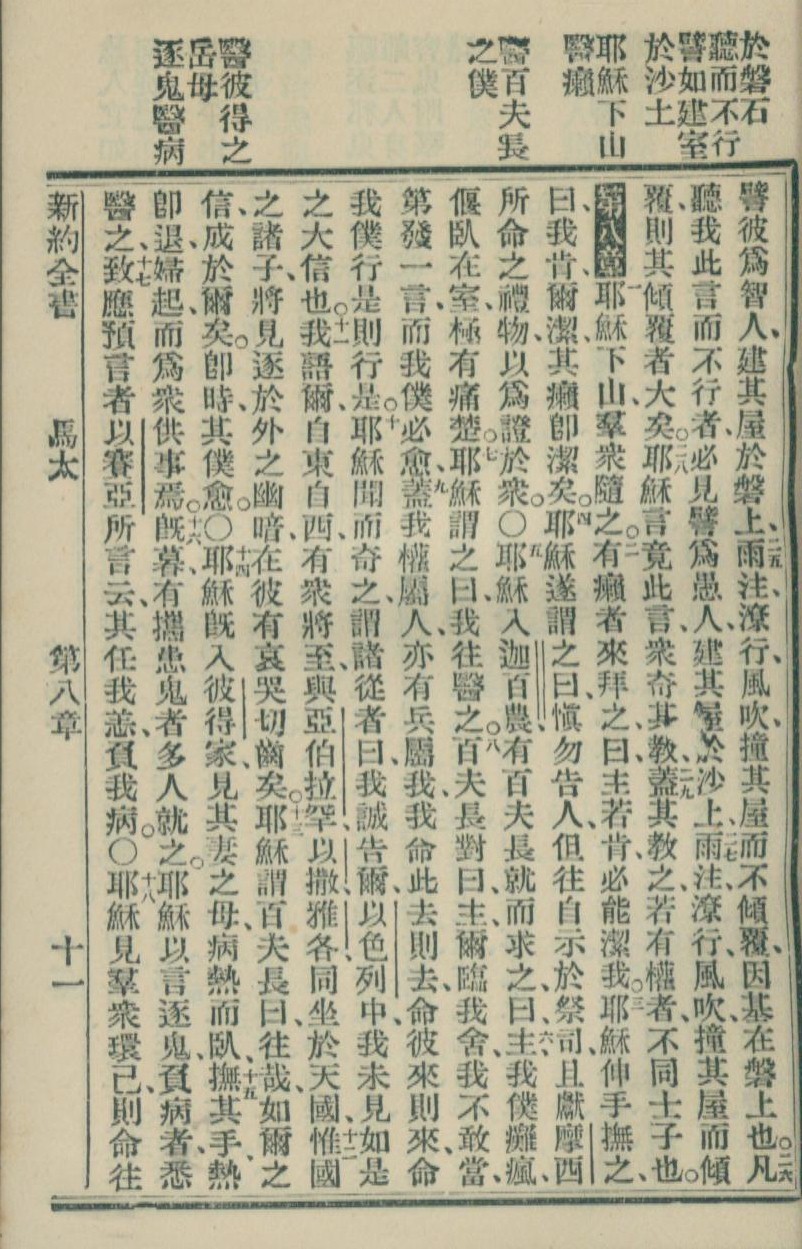 於磐石
聽而不行
譬如建室
於沙土
耶穌下山
醫癩
醫百夫長
之僕
醫彼得之
岳母
逐鬼醫病
譬彼爲智人、建其屋於磐上、二五雨注、潦行、風吹、撞其屋而不傾覆、因基在磐上也。二六凡
聽我此言而不行者、必見譬爲愚人、建其屋於沙上、二七雨注、潦行、風吹、撞其屋而傾
覆、則其傾覆者大矣。二八耶穌言竟此言、衆奇其教、二九蓋其教之、若有權者、不同士子也。
第八章一耶穌下山、羣衆隨之。二有癩者來拜之、曰、主若肯、必能潔我。三耶穌伸手撫之、
曰、我肯、爾潔、其癩卽潔矣。四耶穌遂謂之曰、愼勿告人、但往自示於祭司、且獻摩西
所命之禮物、以爲證於衆〇五耶穌入迦百農、有百夫長就而求之曰、六主、我僕癱瘋、
偃臥在室、極有痛楚。七耶穌謂之曰、我往醫之。八百夫長對曰、主、爾臨我舍、我不敢當、
第發一言、而我僕必愈、九蓋我權屬人、亦有兵屬我、我命此去則去、命彼來則來、命
我僕行是則行是。十耶穌聞而奇之、謂諸從者曰、我誠告爾、以色列中、我未見如是
之大信也。十一我語爾、自東自西、有衆將至、與亞伯拉罕、以撒、雅各、同坐於天國、十二惟國
之諸子、將見逐於外之幽暗、在彼有哀哭切齒矣。十三耶穌謂百夫長曰、往哉、如爾之
信、成於爾矣。卽時、其僕愈。〇十四耶穌旣入彼得家、見其妻之母病熱而臥、十五撫其手、熱
卽退、婦起而爲衆供事焉。十六旣暮、有攜患鬼者多人就之。耶穌以言逐鬼、負病者、悉
醫之、十七致應預言者以賽亞所言云、其任我恙、負我病。〇十八耶穌見羣衆環己、則命往
新約全書 馬太 第八章 十一